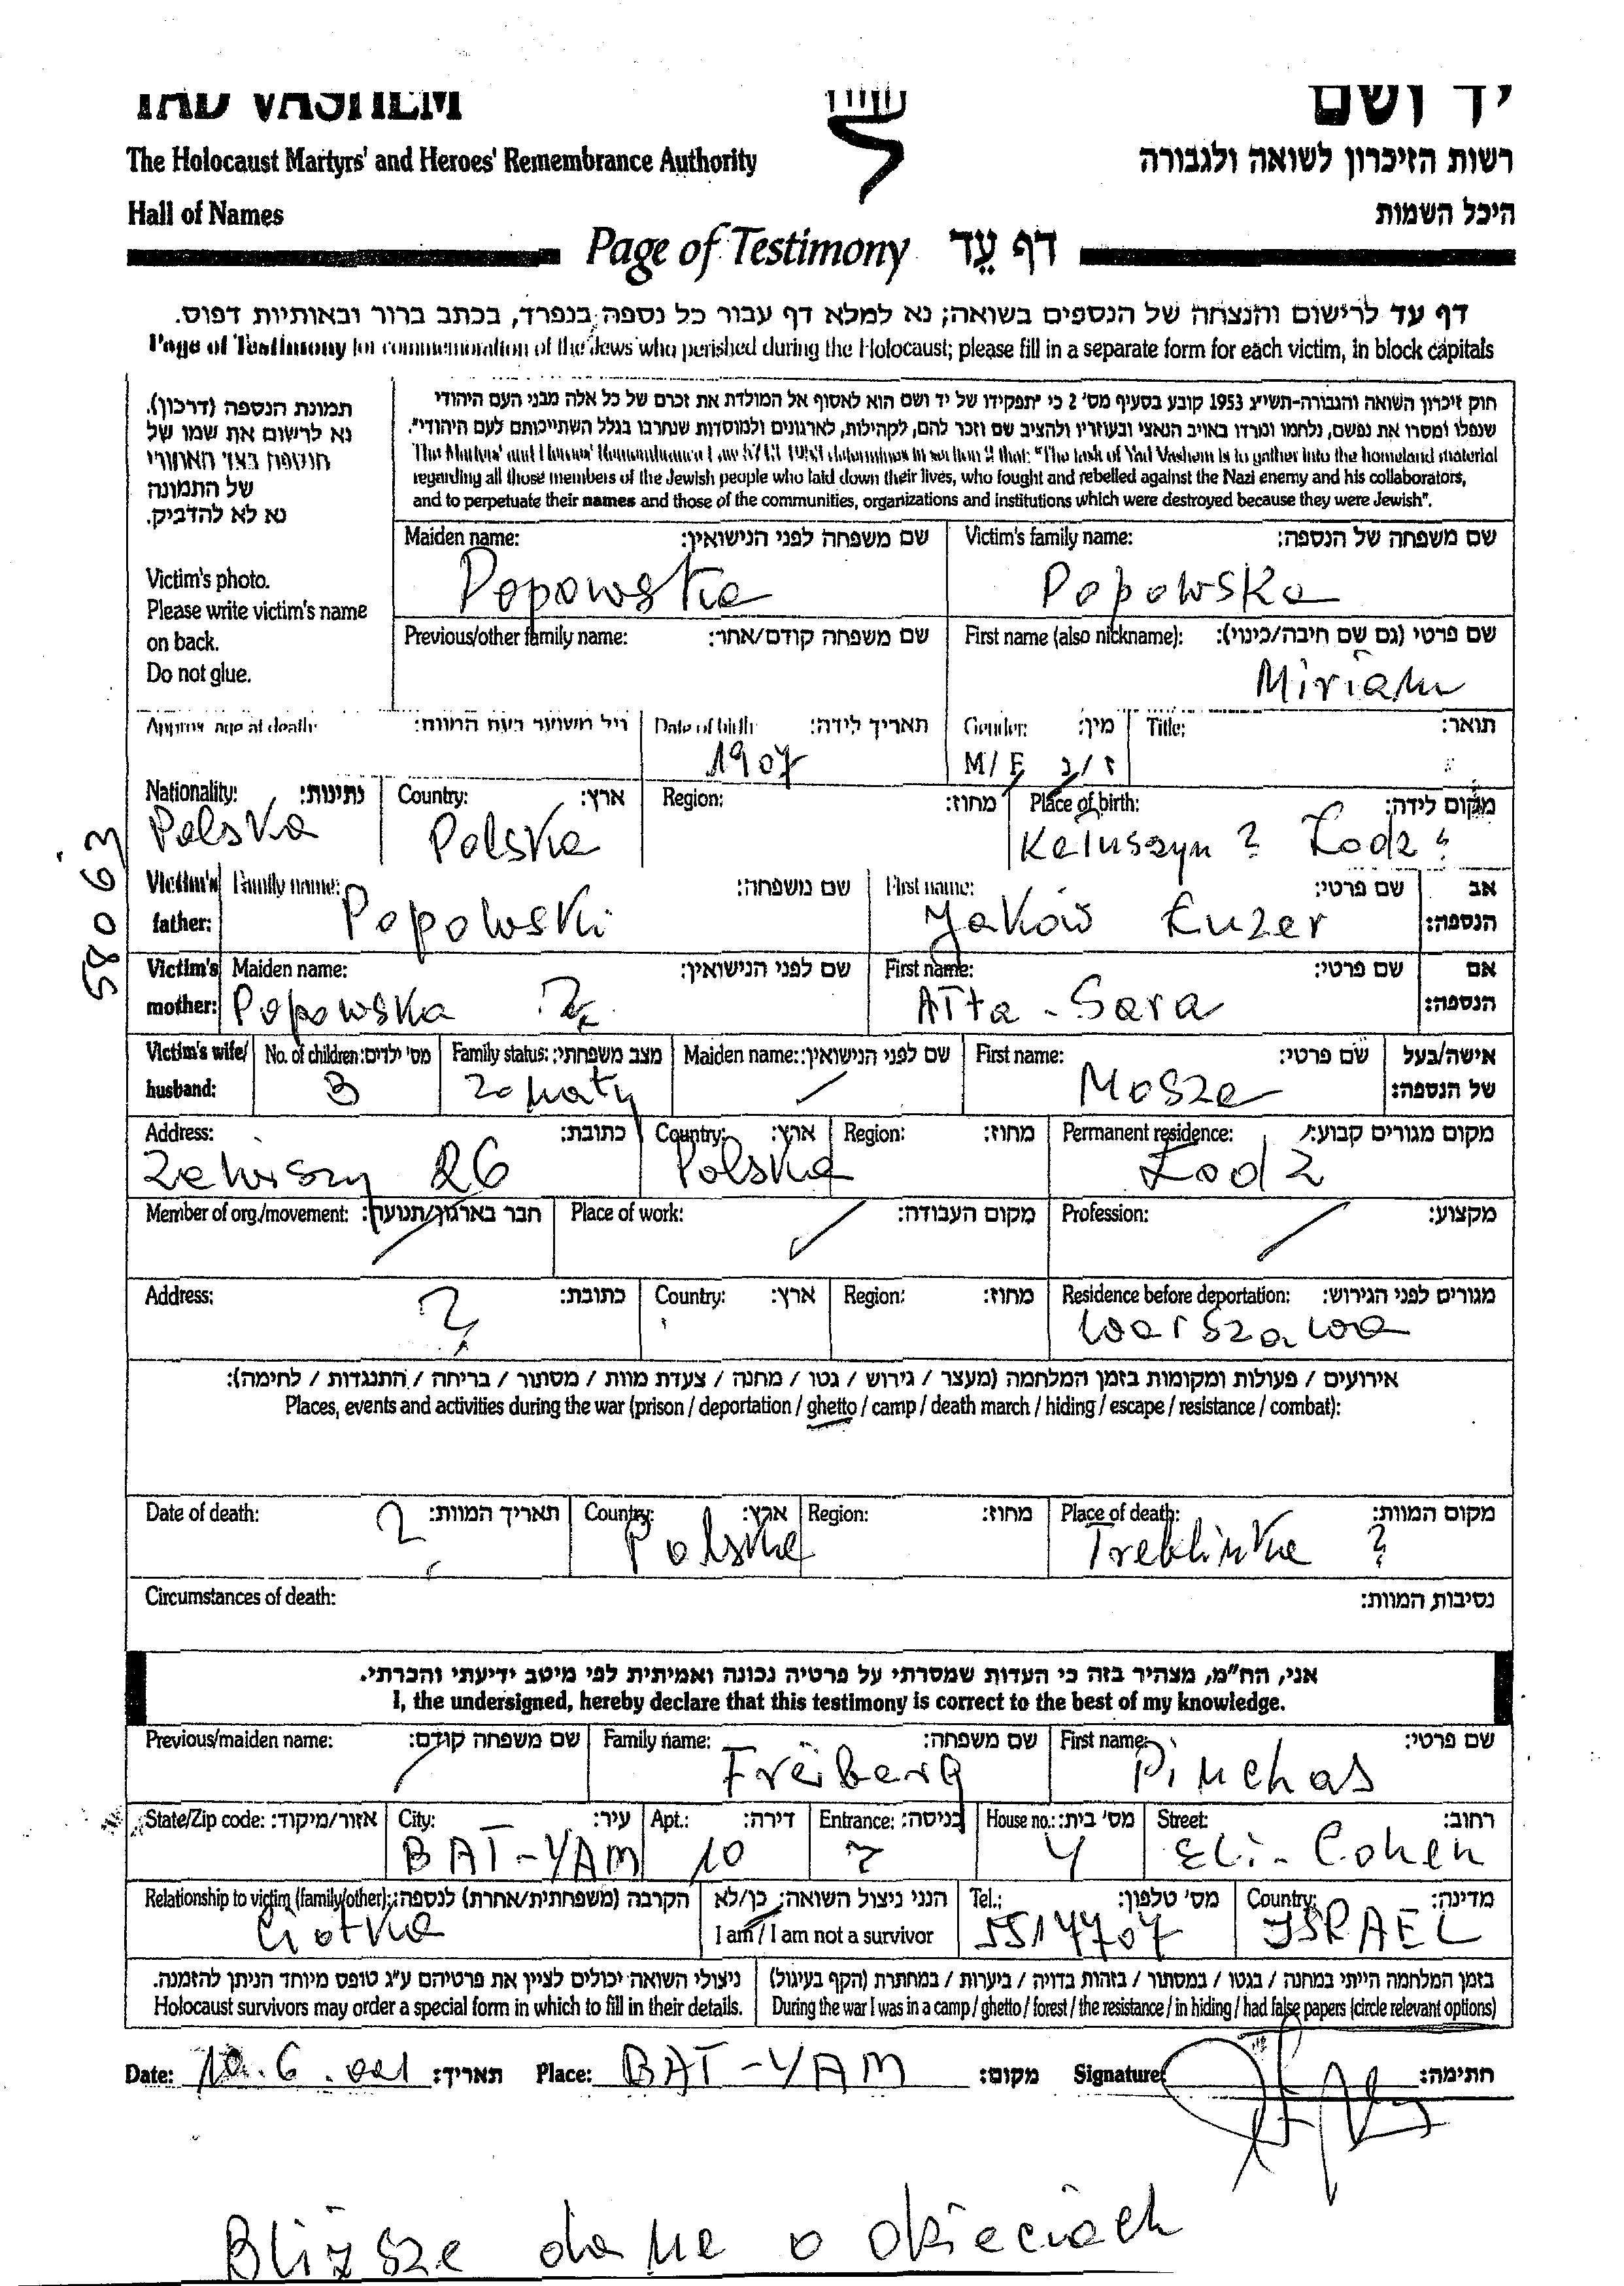 YAD VASHEM יד ושם
The Holocaust Martyrs' and Heroes' Remembrance Authority רשות הזיכרון לשואה ולגבורה
Hall of Names היכל השמות
Page of Testimony דף עֵד
דף עד לרישום והנצחה של הנספים בשואה; נא למלא דף עבור כל נספה בנפרד, בכתב ברור ובאותיות דפוס.
Page of Testimony for commemoration of the Jews who perished during the Holocaust; please fill in a separate form for each victim, in block capitals
תמונת הנספה (דרכון).
נא לרשום את שמו של
הנספה בצד האחורי
של התמונה
נא לא להדביק.
Victim's photo.
Please write victim's name
on back.
Do not glue.
חוק זיכרון השואה והגבורה-תשי"ג 1953 קובע בסעיף מס' 2 כי "תפקידו של יד ושם הוא לאסוף אל המולדת את זכרם של כל אלה מבני העם היהודי
שנפלו ומסרו את נפשם, נלחמו ומרדו באויב הנאצי ובעוזריו ולהציב שם וזכר להם, לקהילות, לארגונים ולמוסדות שנחרבו בגלל השתייכותם לעם היהודי".
The Martyrs' and Heroes' Remembrance Law 5713-1953 determines in section 2 that: "The task of Yad Vashem is to gather into the homeland material
regarding all those members of the Jewish people who laid down their lives, who fought and rebelled against the Nazi enemy and his collaborators,
and to perpetuate their names and those of the communities, organizations and institutions which were destroyed because they were Jewish".
Maiden name: שם משפחה לפני הנישואין: Victim's family name: שם משפחה של הנספה:
Popowska Popowska
Previous/other family name: שם משפחה קודם/אחר: First name (also nickname): שם פרטי (גם שם חיבה/כינוי):
Miriam
Approx. age at death: גיל משוער בעת המוות: Date of birth: תאריך לידה: Gender: מין: Title: תואר:
1907 M/F ז/נ
Nationality: נתינות: Country: ארץ: Region: מחוז: Place of birth: מקום לידה:
Polska Polska Kaluszyn ? Łodz ?
58063
Victim's father: Family name: שם משפחה: First name: שם פרטי: אב הנספה:
Popowski Jaków Łuzer
Victim's mother: Maiden name: שם לפני הנישואין: First name: שם פרטי: אם הנספה:
Popowska ? Atta - Sara
Victim's wife/husband: No. of children: מס' ילדים: Family status: מצב משפחתי: Maiden name: שם לפני הנישואין: First name: שם פרטי: אישה/בעל של הנספה:
3 Mosze
Address: כתובת: Country: ארץ: Region: מחוז: Permanent residence: מקום מגורים קבוע:
Zawiszy 26 Polska Łodz
Member of org./movement: חבר בארגון/תנועה: Place of work: מקום העבודה: Profession: מקצוע:
Address: כתובת: Country: ארץ: Region: מחוז: Residence before deportation: מגורים לפני הגירוש:
? Warszawa
אירועים / פעולות ומקומות בזמן המלחמה (מעצר / גירוש / גטו / מחנה / צעדת מוות / מסתור / בריחה / התנגדות / לחימה):
Places, events and activities during the war (prison / deportation / ghetto / camp / death march / hiding / escape / resistance / combat):
Date of death: תאריך המוות: Country: ארץ: Region: מחוז: Place of death: מקום המוות:
? Polska Treblinka ?
Circumstances of death: נסיבות המוות:
אני, הח"מ, מצהיר בזה כי העדות שמסרתי על פרטיה נכונה ואמיתית לפי מיטב ידיעתי והכרתי.
I, the undersigned, hereby declare that this testimony is correct to the best of my knowledge.
Previous/maiden name: שם משפחה קודם: Family name: שם משפחה: First name: שם פרטי:
Freiberg Pinchas
State/Zip code: אזור/מיקוד: City: עיר: Apt.: דירה: Entrance: כניסה: House no.: מס' בית: Street: רחוב:
BAT-YAM 10 4 Eli-Cohen
Relationship to victim (family/other): הקרבה (משפחתית/אחרת) לנספה: הנני ניצול השואה; כן/לא Tel.: מס' טלפון: Country: מדינה:
Ciotka I am / I am not a survivor 5514707 ISRAEL
ניצולי השואה יכולים לציין את פרטיהם ע"ג טופס מיוחד הניתן להזמנה. בזמן המלחמה הייתי במחנה / בגטו / במסתור / בזהות בדויה / ביערות / במחתרת (הקף בעיגול)
Holocaust survivors may order a special form in which to fill in their details. During the war I was in a camp / ghetto / forest / the resistance / in hiding / had false papers (circle relevant options)
Date: 10.6.001 תאריך: Place: BAT-YAM מקום: Signature: חתימה:
Bliższe dane o dzieciach